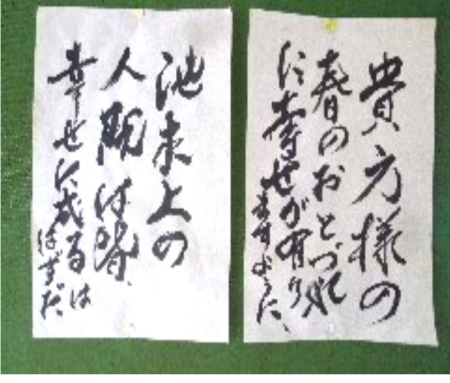 貴方様の
春のおとづれ
に幸せが有り
ますように、
地球上の
人間は皆、
幸せに成るは
はずだ